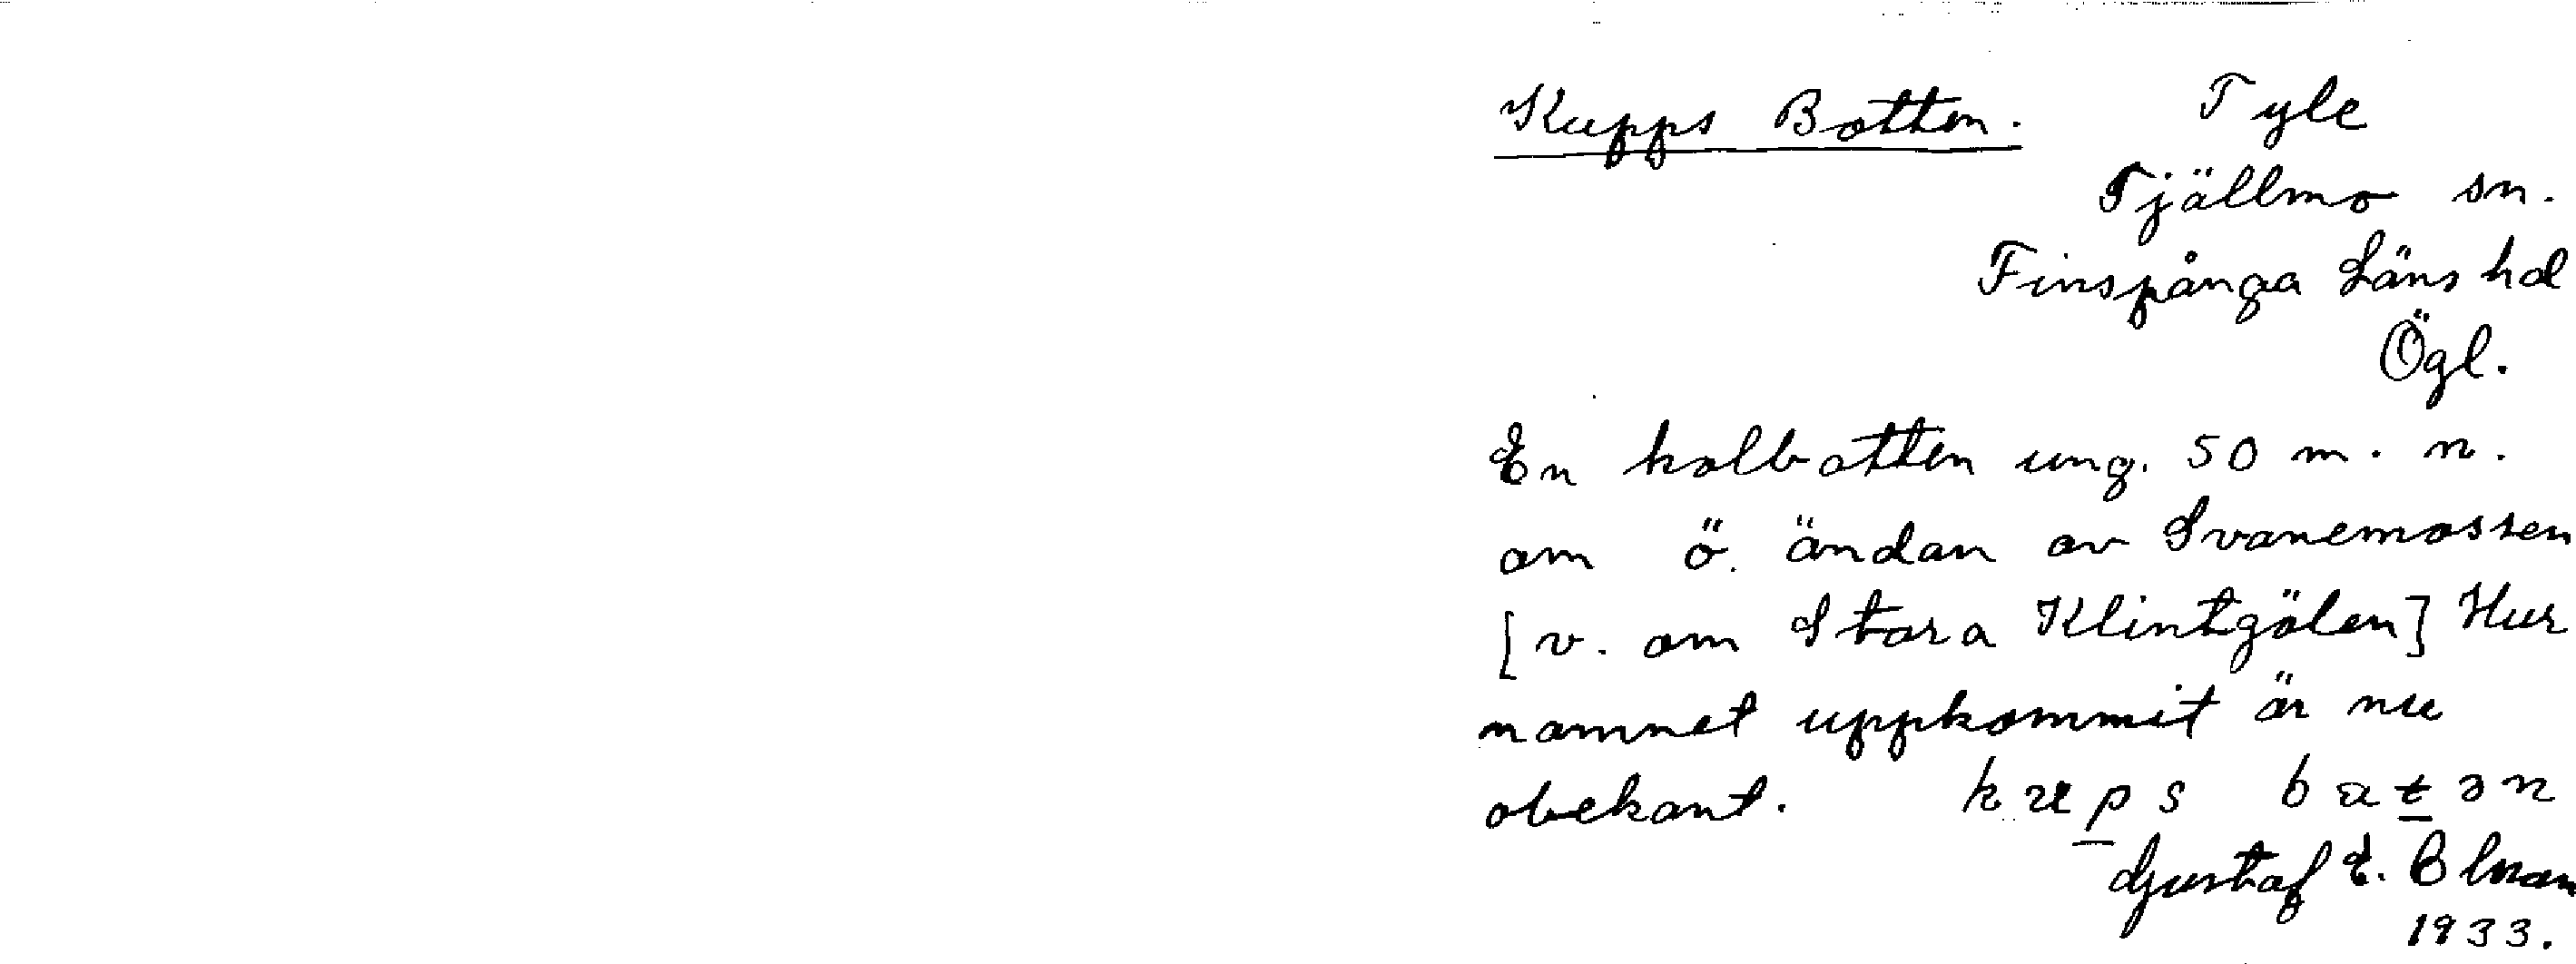 Kupps Botten. Tyle
Tjällmo sn.
Finspånga Läns hd
Ögl.
En kolbotten ung. 50 m. n.
om ö. ändan av Svanemossen
[v. om Stora Klintgölen] Hur
namnet uppkommit är nu
obekant. kups batən
Gustaf E.
1933.